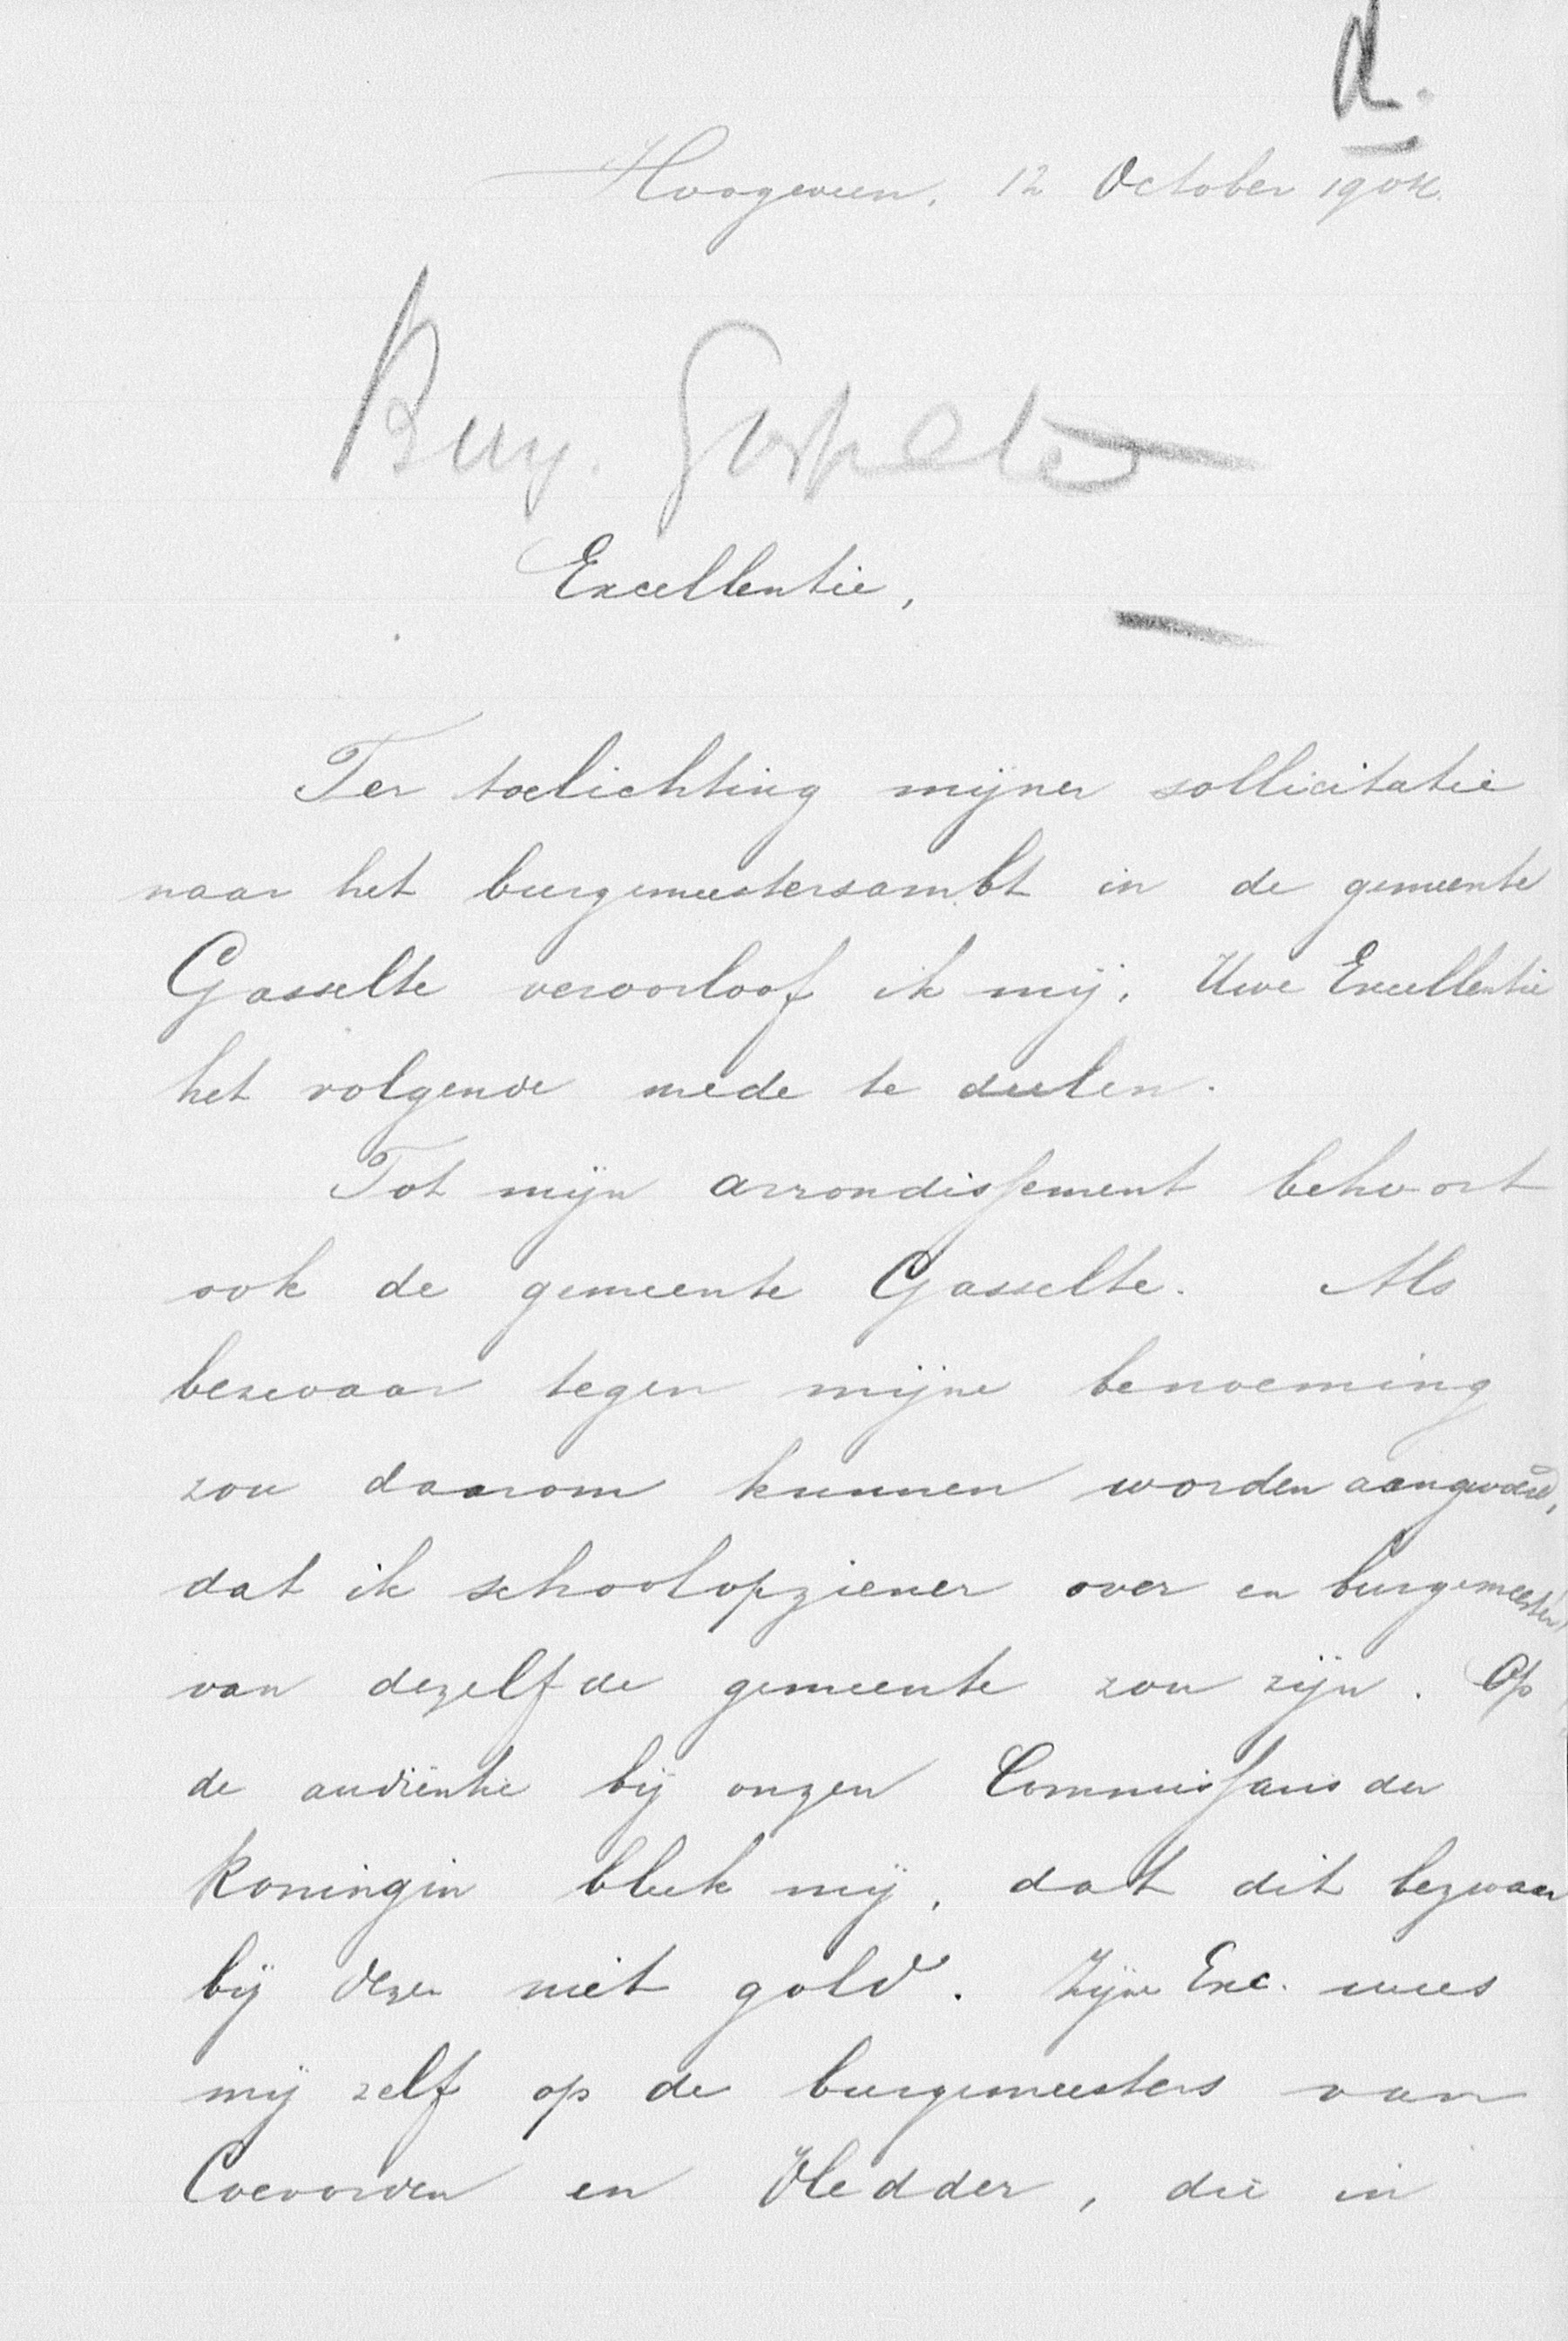 d.
Hoogeveen, 12 October 1904.
Burg. Gasselte
Excellentie,
Ter toelichting mijner sollicitatie
naar het burgemeestersambt in de gemeente
Gasselte veroorloof ik mij, Uwe Excellentie
het volgende mede te deelen.
Tot mijn arrondissement behoort
ook de gemeente Gasselte. Als
bezwaar tegen mijne benoeming
zou daarom kunnen worden aangevoerd,
dat ik schoolopziener over en burgemeester
van dezelfde gemeente zou zijn. Op
de audiëntie bij onzen Commissaris der
Koningin bleek mij, dat dit bezwaar
bij dezen niet gold. Zijne Exc. wees
mij zelf op de burgemeesters van
Coevorden en Vledder, die in